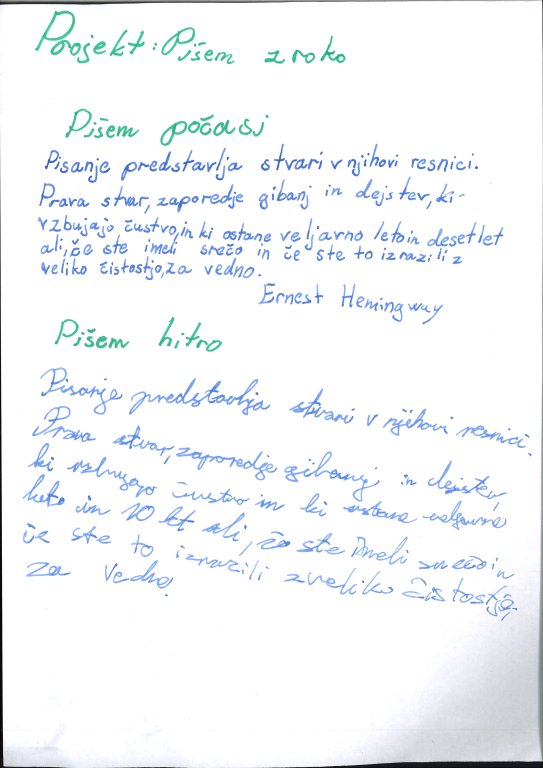 Projekt: Pišem z roko
Pišem počasi
Pisanje predstavlja stvari v njihovi resnici.
Prava stvar, zaporedje gibanj in dejstev, ki-
vzbujajo čustvo, in ki ostane veljavno leto in desetlet
ali, če ste imeli srečo in če ste to izrazili z
veliko čistostjo, za vedno.
Ernest Hemingway
Pišem hitro
Pisanje predstavlja stvari v njihovi resnici.
Prava stvar, zaporedje gibanj in dejstev,
ki vzbujajo čustvo in ki ostane veljavno
leto in 10 let ali, če ste imeli srečo in
če ste to izrazili z veliko čistostjo,
za vedno.